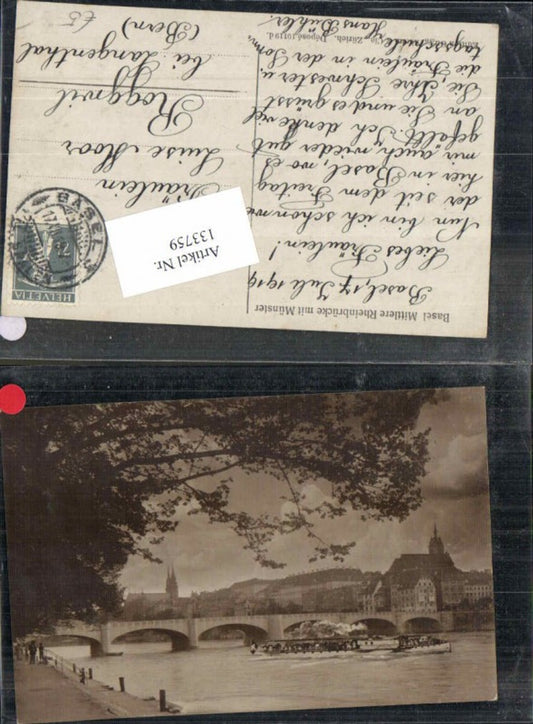 Basel Mittlere Rheinbrücke mit Münster
Basel, 17 Juli 1919
Liebes Fräulein!
Nun bin ich schon
der seit dem Freitag
hier in Basel, wo es
mir auch wieder gut
gefällt. Ich denke
an Sie und es grüsst
Sie Ihre Schwester u.
die Fräulein in der
Hans Bühler
Zürich. Déposé 10119d.
Fräulein
Luise Moor
Roggwil
bei Langenthal
(Bern)
BASEL
HELVETIA
Artikel Nr.
133759